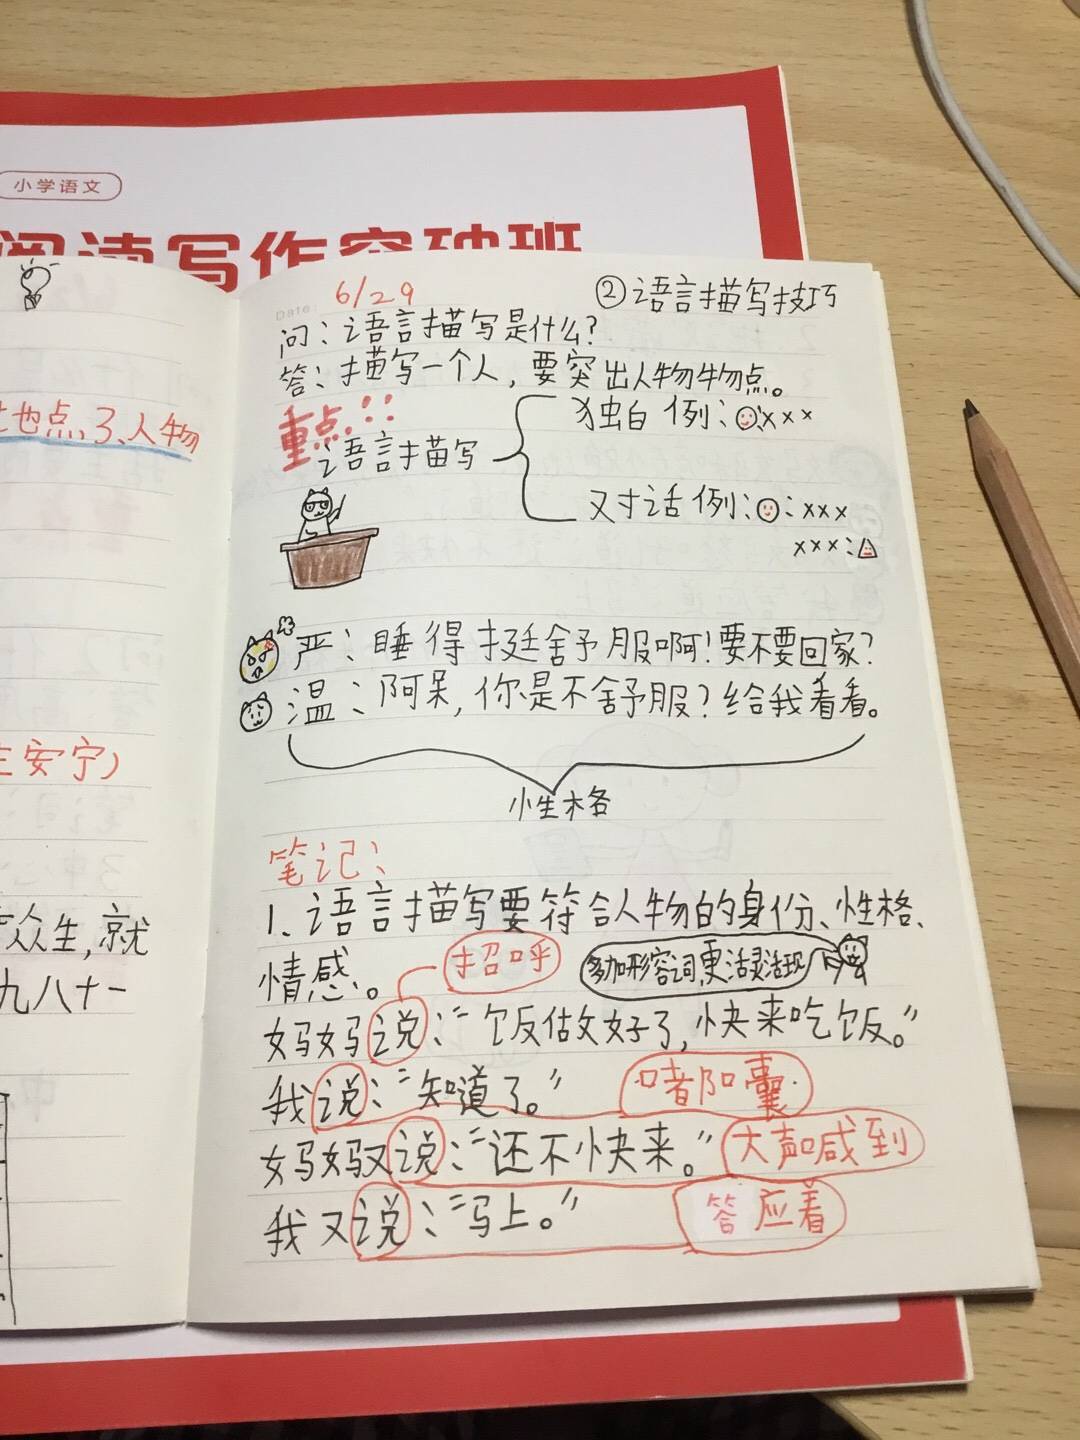 小学语文
阅读写作突破班
地点、3、人物
主安宁)
众生,就
九八十一
Date:
6/29
②语言描写技巧
问:语言描写是什么?
答:描写一个人,要突出人物物点。
重点!!
语言描写
独白 例:xxx
对话 例::xxx
xxx:
严:睡得挺舒服啊!要不要回家?
温:阿呆,你是不舒服?给我看看。
小生格
笔记:
1、语言描写要符合人物的身份、性格、
情感。
招呼
多加形容词,更活灵活现
妈妈说:“饭做好了,快来吃饭。”
我说:“知道了。”
嘟囔
妈妈又说:“还不快来。”
大声喊到
我又说:“马上。”
答应着